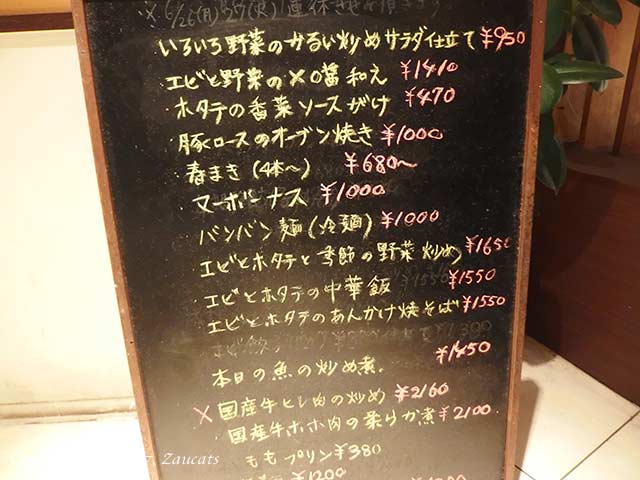 ※6/26(月)27(火)連休させて頂きます
いろいろ野菜のかるい炒めサラダ仕立て ¥950
エビと野菜のXO醬和え ¥1410
ホタテの香菜ソースがけ ¥470
豚ロースのオーブン焼き ¥1000
春まき(4本〜) ¥680〜
マーボーナス ¥1000
バンバン麺(冷麺) ¥1000
エビとホタテと季節の野菜炒め ¥1650
エビとホタテの中華飯 ¥1550
エビとホタテのあんかけ焼そば ¥1550
本日の魚の炒め煮. ¥1450
×国産牛ヒレ肉の炒め ¥2160
国産牛ホホ肉の柔らか煮 ¥2100
ももプリン ¥380
¥1200
Zaucats